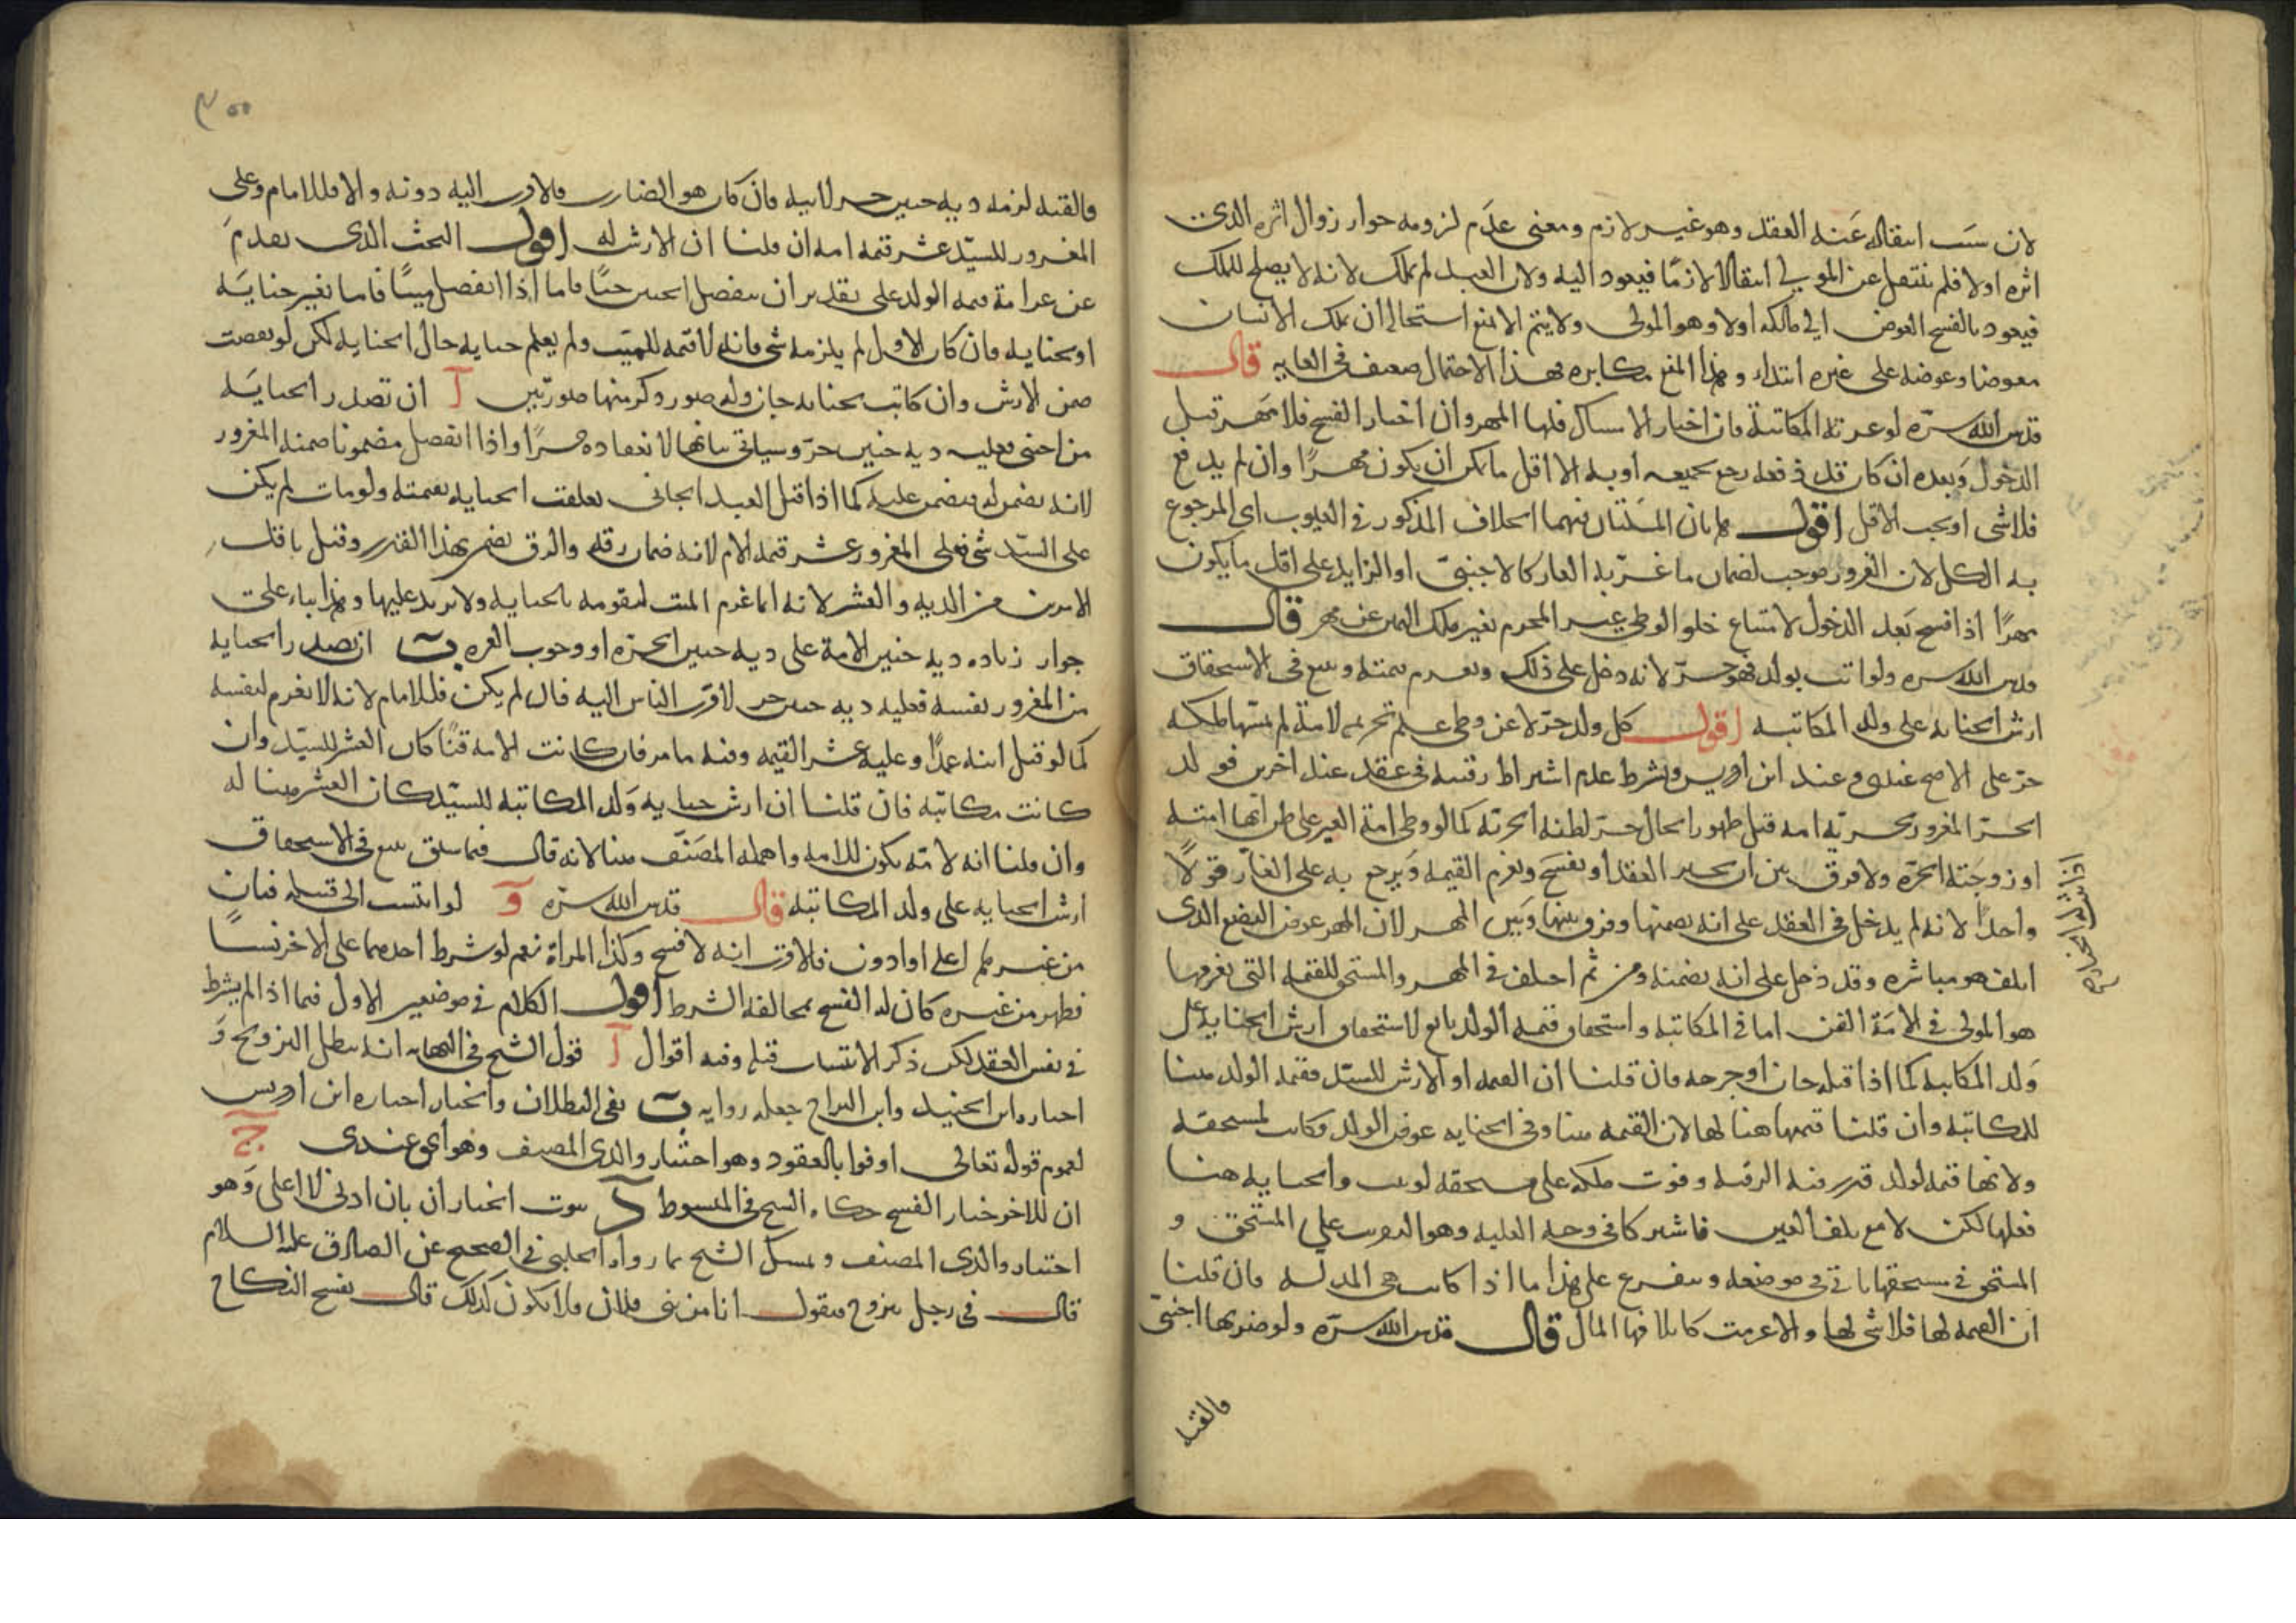 لان سبب انتقاله عنه العقد وهو غير لازم ومعنى عدم لزومه جواز زوال اثره الذي
اثره اولا فلم ينتقل عن المولى انتقالا لازما فيعود اليه ولان العبد لم يملك لانه لا يصلح للملك
فيعود بالفسخ العوض الى مالكه اولا وهو المولى ولا يتم الا بمنع استحالة ان يملك الانسان
معوضا وعوضه على غيره ابتداء وهذا المنع مكابره فهذا الاحتمال ضعيف في الغايه قال
قدس الله سره لو غرته المكاتبة فان اختار الامساك فلها المهر وان اختار الفسخ فلا مهر قبل
الدخول وبعده ان كان قد دفعه رجع بجميعه او به الا اقل ما يمكن ان يكون مهرا وان لم يدفع
فلا شيء او يجب الاقل اقول هاتان المسئلتان فيهما الخلاف المذكور في العيوب اي المرجوع
به الكل لان الغرور موجب لضمان ما غر به الغار كالاجنبي او الزايد على اقل ما يكون
مهرا اذا فسخ بعد الدخول لامتناع خلو الوطي غير المحرم بغير ملك اليمين عن مهر قال
قدس الله سره ولو اتت بولد فهو حر لانه دخل على ذلك ويغرم قيمته ويتبع في الاستحقاق
ارش الجنايه على ولد المكاتبه اقول كل ولد حر لا عن وطي علم تحريمه لامة لم يشبها ملكه
حر على الاصح عندي وعند ابن ادريس ويشرط عدم اشتراط رقيته في عقد عند اخرين فولد
الحر المغرور بحرية امه قبل ظهور الحال حر لظنه الحرية كما لو وطي امة الغير على ظن انها امته
او زوجته الحرة ولا فرق بين ان يجيز العقد او يفسخ ويغرم القيمه ويرجع به على الغار قولا
واحدا لانه لم يدخل في العقد على انه يضمنها وفرق بينها وبين المهر لان المهر عوض البضع الذي
اتلفه هو مباشره وقد دخل على انه يضمنه ومن ثم اختلف في المهر والمستحق للقيمه التي يغرمها
هو المولى في الامة القن اما في المكاتبه واستحقاق قيمة الولد تابع لاستحقاق ارش الجنايه على
ولد المكاتبه كما اذا قتله جان او جرحه فان قلنا ان القيمه او الارش للسيد فقيمه الولد هنا
للمكاتبة وان قلنا قيمتها هنا لها لان القيمه هنا وفي الجنايه عوض الولد وكانت لمستحقه
ولانها قيمة لولد قدر فيه الرقيه وفوت ملكه على مستحقه لو والجنايه هنا
فعلها لكن لا مع تلف العين فاشتركا في وجه العليه وهو التفويت على المستحق و
المستحق في مستحقها ياتي في موضعه ويتفرع على هذا ما اذا كانت هي المدلسه فان قلنا
ان القيمه لها فلا شيء لها والا غرمت كاتلافها المال قال قدس الله سره ولو ضربها اجنبي
فالقته
فالقته لزمه دية جنين حر لابيه فان كان هو الضارب فلاقرب اليه دونه والا فللامام وعلى
المغرور للسيد عشر قيمة امه ان قلنا ان الارش له اقول البحث الذي تقدم
عن غرامة قيمه الولد على تقدير ان ينفصل الجنين حيا فاما اذا انفصل ميتا فاما بغير جناية
او بجنايه فان كان الاول لم يلزمه شيء فانه لا قيمه للميت ولم يعلم حياته حال الجنايه لكن لو نقصت
ضمن الارش وان كانت بجنايه جان وله صور وذكر منها صورتين آ ان تصدر الجناية
من اجنبي فعليه دية جنين حر وسياتي بيانها لانعقاده حرا واذا انفصل مضمونا ضمنه المغرور
لانه يضمن له فيضمن عليه كما اذا قتل العبد الجاني تعلقت الجنايه بقيمته ولو مات لم يكن
على السيد شيء فعلى المغرور عشر قيمة الام لانه ضمان رقه والرق يضمن بهذا القدر وقيل باقل
الامرين من الديه والعشر لانه انما غرم الميت لتقومه بالجنايه ولا يزيد عليها وهذا بناء على
جواز زياده دية جنين الامة على دية جنين الحرة او وجوب الغره ب ان تصدر الجنايه
من المغرور بنفسه فعليه دية جنين حر لاقرب الناس اليه فان لم يكن فللامام لانه لا يغرم لنفسه
كما لو قتل ابنه عمدا وعليه عشر القيمه وفيه ما مر فان كانت الامه قنا كان العشر للسيد وان
كانت مكاتبه فان قلنا ان ارش جنايه ولد المكاتبه للسيد كان العشر هنا له
وان قلنا انه لامه يكون للامه واهمله المصنف هنا لانه قال فيما سبق يتبع في الاستحقاق
ارش الجنايه على ولد المكاتبه قال قدس الله سره و لو انتسب الى قبيله فبان
من غيرهم اعلى او ادون فالاقرب انه لا فسخ وكذا المراة نعم لو شرط احدهما على الاخر نسبا
فظهر من غيره كان له الفسخ بمخالفة الشرط اقول الكلام في موضعين الاول فيما اذا لم يشرط
في نفس العقد لكن ذكر الانتساب قبله وفيه اقوال آ قول الشيخ في النهايه انه يبطل التزويج و
اختاره ابن الجنيد وابن البراج جعله روايه ب نفي البطلان والخيار اختاره ابن ادريس
لعموم قوله تعالى اوفوا بالعقود وهو اختيار والدي المصنف وهو اقوى عندي ج
ان للاخر خيار الفسخ حكاه الشيخ في المبسوط د ثبوت الخيار ان بان ادنى لا اعلى وهو
اختيار والدي المصنف وتمسك الشيخ بما رواه الحلبي في الصحيح عن الصادق عليه السلام
قال في رجل يتزوج فيقول انا من بني فلان فلا يكون كذلك قال يفسخ النكاح